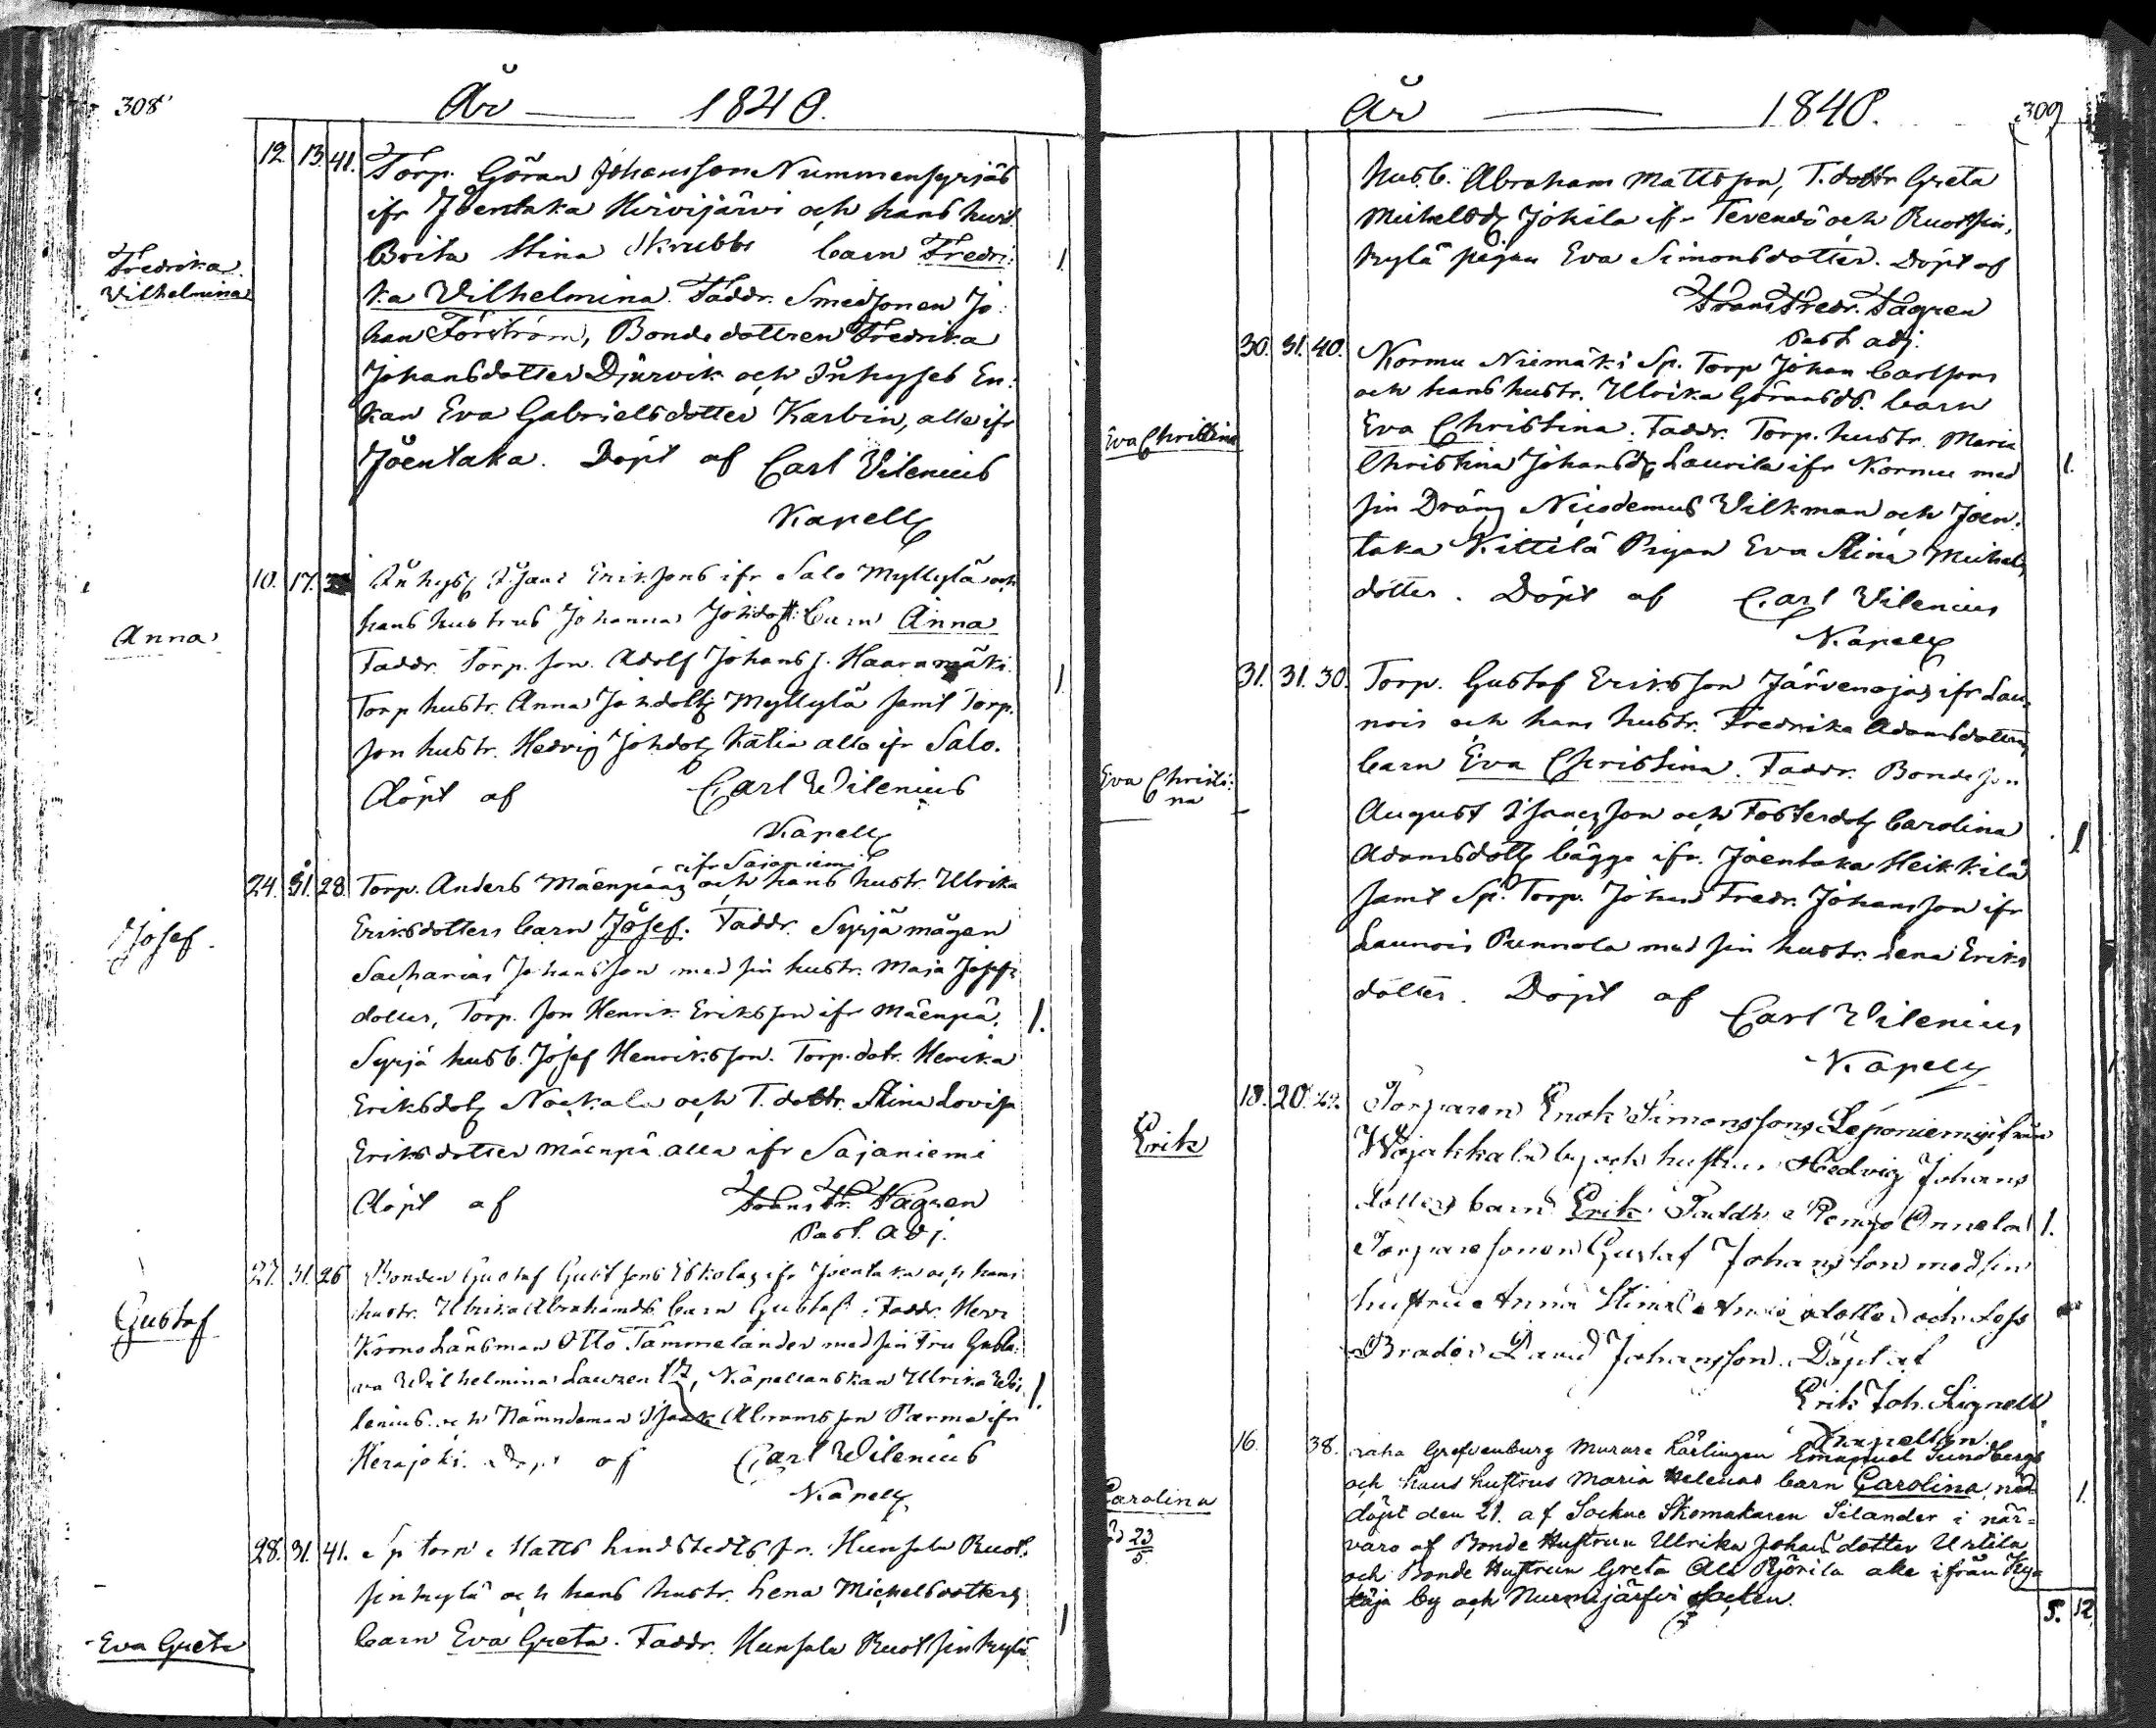 308
År 1840.
12. 13. 41. Torp. Göran Johansson Nummensyrjäs
ifr Joentaka Hirvijärvi och hans hust.
Brita Stina Skrubbs barn Fredri:
Fredrika
Vilhelmina
ka Vilhelmina. Faddr. Smedsonen Jo:
han Forström, Bonde dottren Fredrika
Johansdotter Djurvik och Inhyses En:
kan Eva Gabrielsdotter Karbin, alla ifr
Joentaka. Döpt af Carl Vilenius
Kapell
1
10. 17. Inhys Isaac Eriksons ifr Salo Myllylä och
hans hustrus Johanna Johdott. barn Anna
Anna
Faddr. Torp. son. Adolf Johanss. Haaramäki.
Torp hustr. Anna Johdott Myllylä samt Torp.
son hustr. Hedvig Johdott Katia alla ifr Salo.
Döpt af Carl Wilenius
Kapell
1
24. 31. 28. Torp. Anders Mäenpääs ifr Sajaniemi och hans hustr. Ulrika
Eriksdotters barn Josef. Faddr. Syrjä mågen
Josef.
Sacharias Johansson med sin hustr. Maja Josefs
dotter, Torp. son Henrik Eriksson ifr Mäenpä,
Syrjä husb. Josef Henriksson. Torp. dotr. Henrika
Eriksdott Nokala och T. dottr. Stina Lovisa
Eriksdotter Mäenpä alla ifr Sajaniemi
Döpt af Frans Fr. Fagren
Past. adj.
1.
27. 31. 26 Bonden Gustaf Gustfsons Eskolas ifr Joentaka och hans
hustr. Ulrika Abrahamds barn Gustaf. Faddr. Herr
Gustaf
Krono Länsman Otto Tammelander med sin fru Gusta:
va Wilhelmina Laurent, Kapellanskan Ulrika Wi:
lenius och Nämndeman Isaak Abramsson Parma ifr
Kerajoki. Döpt af Carl Wilenius
Kapell
1.
28. 31. 41. Sp torp. Matts Lindstedts fr. Hunsala Ruot:
sinkylä och hans hustr. Lena Michelsdotters
barn Eva Greta. Faddr. Hunsala Ruotsinkylä
Eva Greta
1
År 1840.
309
husb. Abraham Mattsson, T. dottr Greta
Michelsd Jokila ifr Tevendö och Ruotsin,
kylä pigan Eva Simonsdotter. Döpt af
Frans Fredr. Fagren
Past adj.
30. 31. 40. Kormu Niemäki Sp. Torp Johan Carlsons
och hans hustr. Ulrika Göransds. barn
Eva Christina
Eva Christina. Faddr. Torp. hustr. Maria
Christina Johansd Laurila ifr Kormu med
sin Dräng Nicodemus Wilkman och Joen:
taka Kittilä Pigan Eva Stina Michels
dotter. Döpt af Carl Vilenius
Kapell
1.
31. 31. 30. Torp. Gustaf Eriksson Järvenojas ifr Lau:
nois och hans hustr. Fredrika Adamsdotters
barn Eva Christina. Faddr. Bonde son
Eva Christi:
na
August Isacsson och Fosterdot Carolina
Adamsdott bägge ifr. Joentaka Heikkilä
samt Sp. Torp. Johan Fredr. Johansson ifr
Launois Punnola med sin hustr. Lena Eriks
dotter. Döpt af Carl Wilenius
Kapell
1
18. 20. 42. Torparen Enok Simonssons Leponiemis ifrån
Wojakkala by och hustrus Hedvig Johans
Erik
dotters barn Erik. Faddr. Penyo Onnela
Torparesonen Gustaf Johansson med sin
hustru Anna Stina dotter och
David Johansson. Döpt af
Erik Joh. Signell
Kapellan.
1.
16. 38. Grefvenburg Murare Lärlingen Emanuel Sundbergs
och hans hustrus Maria Helenas barn Carolina, nöd
Carolina
23
5
döpt den 21. af Sockne Skomakaren Silander i när=
varo af Bonde Hustrun Ulrika Johansdotter Urtila
och Bonde Hustrun Greta Als Pjörila alle ifrån Kyt
täja by och Nurmijärfvi Socken.
1.
5. 12